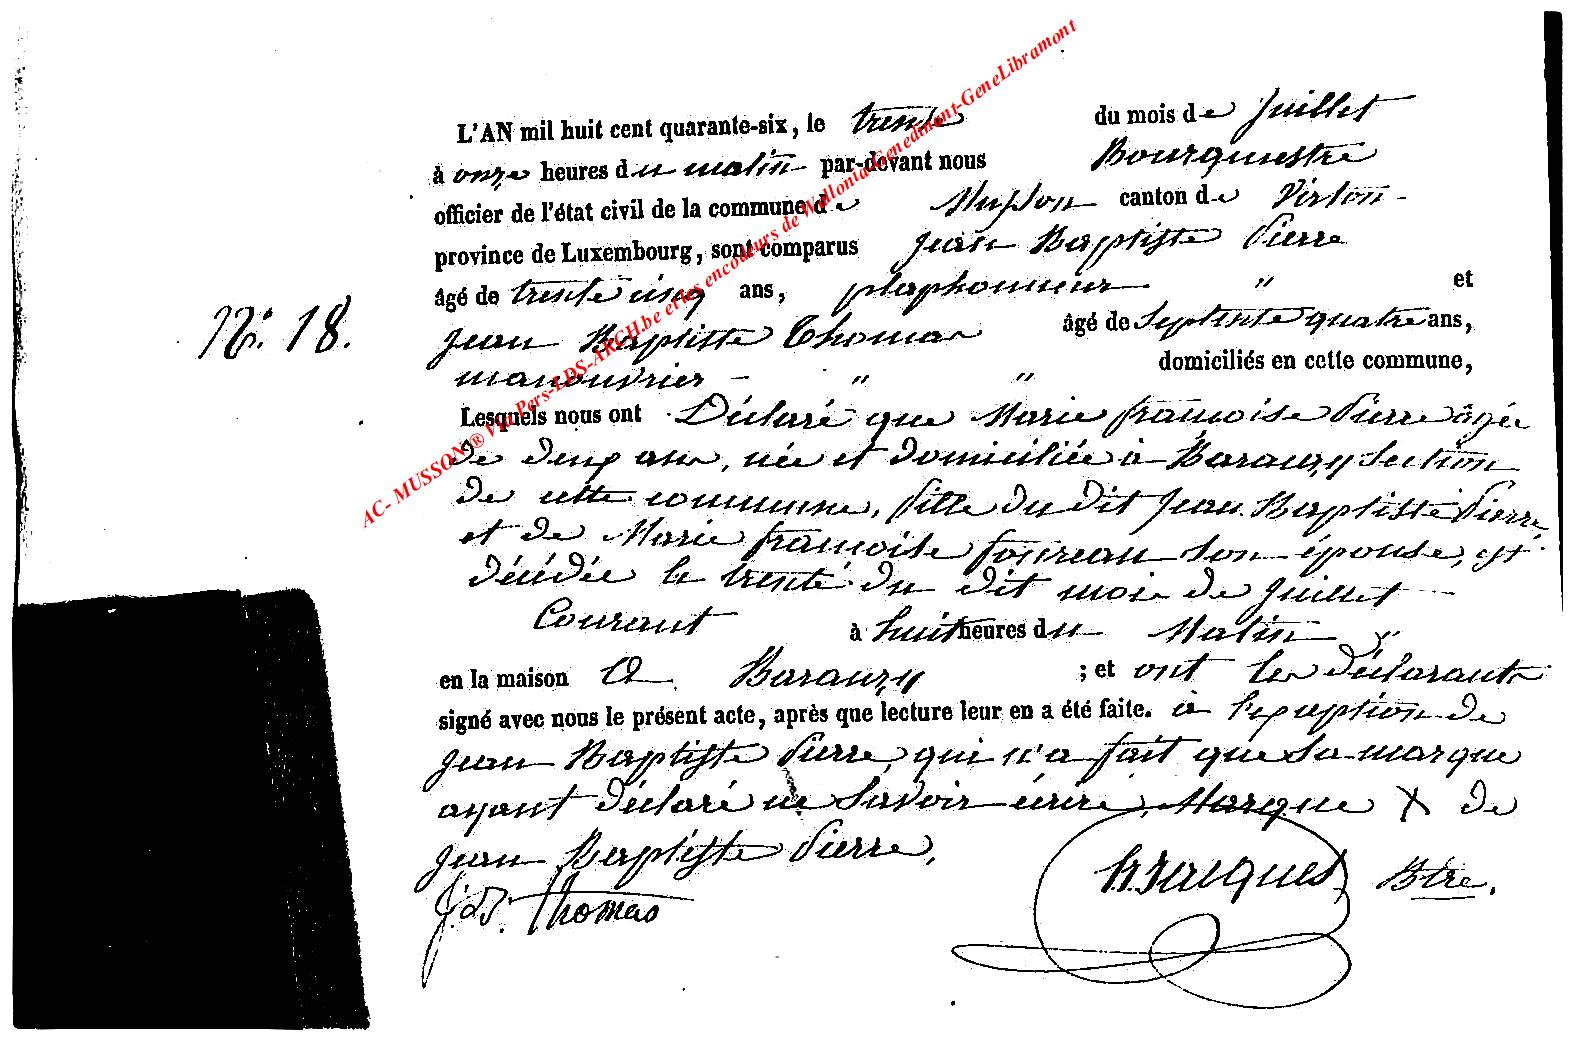 L'AN mil huit cent quarante-six, le trente du mois de Juillet
à onze heures du matin par-devant nous Bourgmestre
officier de l'état civil de la commune de Musson canton de Virton
province de Luxembourg, sont comparus Jean Baptiste Pierre
âgé de trente cinq ans, plaphonneur " et
Jean Baptiste Thomas âgé de Septente quatre ans,
manouvrier - " " domiciliés en cette commune,
N°. 18.
Lesquels nous ont Déclaré que Marie françoise Pierre âgée
de deux ans, née et domiciliée à Baranzy Section
de cette commune, fille du dit Jean Baptiste Pierre
et de Marie françoise foureau son épouse, est
décédée le trente du dit mois de Juillet
Courant à huit heures du Matin "
en la maison à Baranzy ; et ont les déclarants
signé avec nous le présent acte, après que lecture leur en a été faite. à l'exception de
Jean Baptiste Pierre, qui n'a fait que sa marque
ayant déclaré ne savoir écrire, Marque X de
Jean Baptiste Pierre,
J. B. Thomas Jacques Btre.
AC- MUSSON ® Via Pers-LDS-ARCH.be et les encodeurs de Wallonia-Genedinant-GeneLibramont